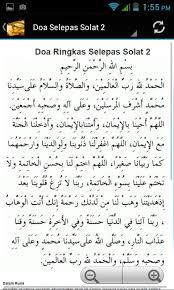 1:55 PM
Doa Selepas Solat 2
Doa Ringkas Selepas Solat 2
بِسْمِ اللَّهِ الرَّحْمَنِ الرَّحِيمِ
الْحَمْدُ لِلَّهِ رَبِّ الْعَالَمِينَ، وَالصَّلَاةُ وَالسَّلَامُ عَلَى سَيِّدِنَا
مُحَمَّدٍ أَشْرَفِ الْمُرْسَلِينَ، وَعَلَى آلِهِ وَصَحْبِهِ أَجْمَعِينَ.
اللَّهُمَّ أَحْيِنَا بِالْإِيمَانِ، وَأَمِتْنَا بِالْإِيمَانِ، وَأَدْخِلْنَا الْجَنَّةَ
مَعَ الْإِيمَانِ، اللَّهُمَّ اغْفِرْ لَنَا ذُنُوبَنَا وَلِوَالِدِينَا وَارْحَمْهُمَا
كَمَا رَبَّيَانَا صِغَارًا، اللَّهُمَّ اخْتِمْ لَنَا بِحُسْنِ الْخَاتِمَةِ وَلَا
تَخْتِمْ عَلَيْنَا بِسُوءِ الْخَاتِمَةِ، رَبَّنَا لَا تُزِغْ قُلُوبَنَا بَعْدَ
إِذْ هَدَيْتَنَا وَهَبْ لَنَا مِنْ لَدُنْكَ رَحْمَةً إِنَّكَ أَنْتَ الْوَهَّابُ
، رَبَّنَا آتِنَا فِي الدُّنْيَا حَسَنَةً وَفِي الْآخِرَةِ حَسَنَةً وَقِنَا
عَذَابَ النَّارِ، وَصَلَّى اللَّهُ عَلَى سَيِّدِنَا مُحَمَّدٍ وَعَلَى آلِهِ
وَصَحْبِهِ وَسَلَّمَ، وَالْحَمْدُ لِلَّهِ رَبِّ الْعَالَمِينَ.
Dalam Rumi